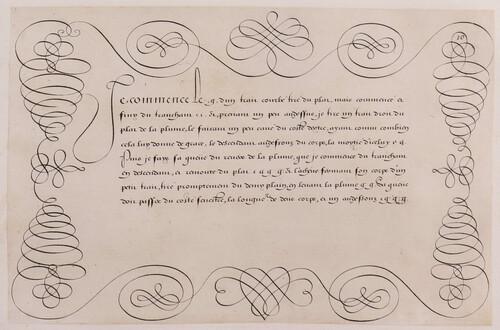 10
Je commence le .q. d'un trait courbe tiré du plat, mais commencé et
finy du tranchant .c. & prenant un peu au dessus, je tire un trait droit du
plat de la plume, le faisant un peu cavé du costé dextre, ayant connu combien
cela luy donne de grace, le descendant au dessous du corps, la moytié d'iceluy
Puis je fays sa queue du revers de la plume, que je commence du tranchant
en descendant, et remonte du plat .q q q. & l'acheve formant son corps d'un
petit trait, tiré promptement du demy plain, en levant la plume .q q. Sa queue
doit passer du costé senestre, la longueur de deux corps, et un au dessous .q.q.q.